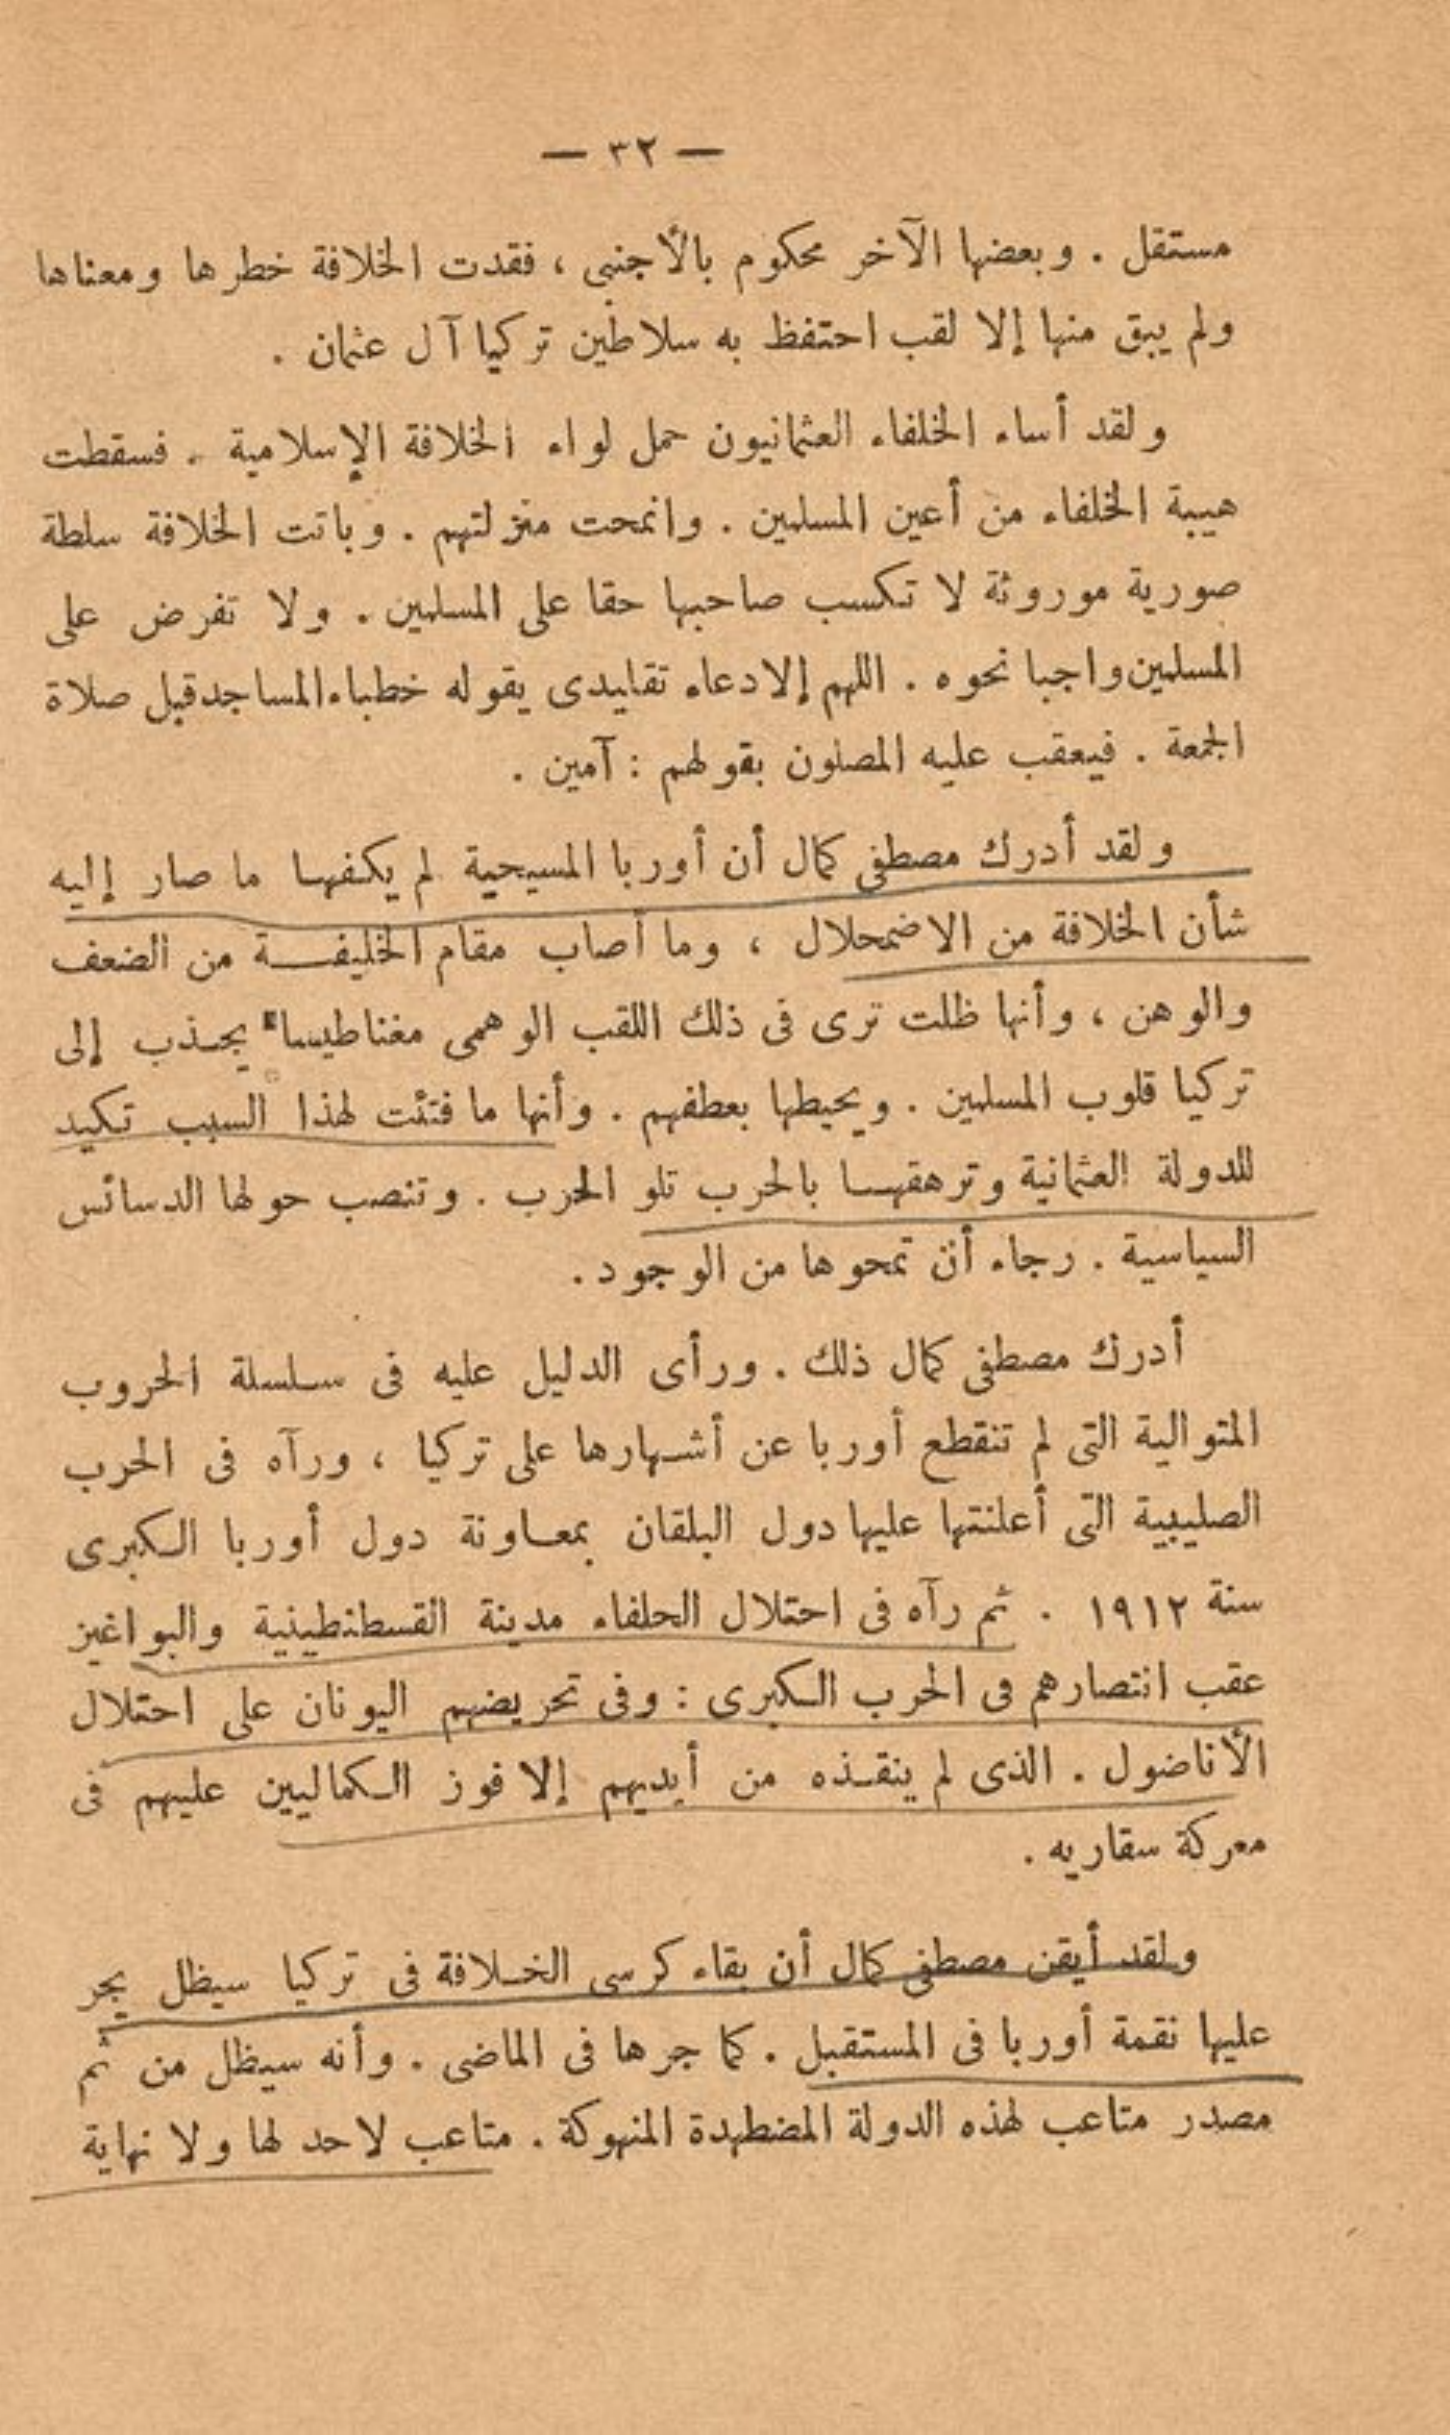 — ٣٢ —
مستقل . وبعضها الآخر محكوم بالأجنبى ، فقدت الخلافة خطرها ومعناها
ولم يبق منها إلا لقب احتفظ به سلاطين تركيا آل عثمان .
ولقد أساء الخلفاء العثمانيون حمل لواء الخلافة الإسلامية . فسقطت
هيبة الخلفاء من أعين المسلمين . وانمحت منزلتهم . وباتت الخلافة سلطة
صورية موروثة لا تكسب صاحبها حقا على المسلمين . ولا تفرض على
المسلمين واجبا نحوه . اللهم إلا دعاء تقليدى يقوله خطباء المساجد قبل صلاة
الجمعة . فيعقب عليه المصلون بقولهم : آمين .
ولقد أدرك مصطفى كمال أن أوربا المسيحية لم يكفها ما صار إليه
شأن الخلافة من الاضمحلال ، وما أصاب مقام الخليفة من الضعف
والوهن ، وأنها ظلت ترى فى ذلك اللقب الوهمى مغناطيسا يجذب إلى
تركيا قلوب المسلمين . ويحيطها بعطفهم . وأنها ما فتئت لهذا السبب تكيد
للدولة العثمانية وترهقها بالحرب تلو الحرب . وتنصب حولها الدسائس
السياسية . رجاء أن تمحوها من الوجود .
أدرك مصطفى كمال ذلك . ورأى الدليل عليه فى سلسلة الحروب
المتوالية التى لم تنقطع أوربا عن أشهارها على تركيا ، ورآه فى الحرب
الصليبية التى أعلنتها عليها دول البلقان بمعاونة دول أوربا الكبرى
سنة ١٩١٢ . ثم رآه فى احتلال الحلفاء مدينة القسطنطينية والبواغيز
عقب انتصارهم فى الحرب الكبرى : وفى تحريضهم اليونان على احتلال
الأناضول . الذى لم ينقذه من أيديهم إلا فوز الكماليين عليهم فى
معركة سقاريه .
ولقد أيقن مصطفى كمال أن بقاء كرسى الخلافة فى تركيا سيظل يجر
عليها نقمة أوربا فى المستقبل . كما جرها فى الماضى . وأنه سيظل من ثم
مصدر متاعب لهذه الدولة المضطهدة المنهوكة . متاعب لا حد لها ولا نهاية